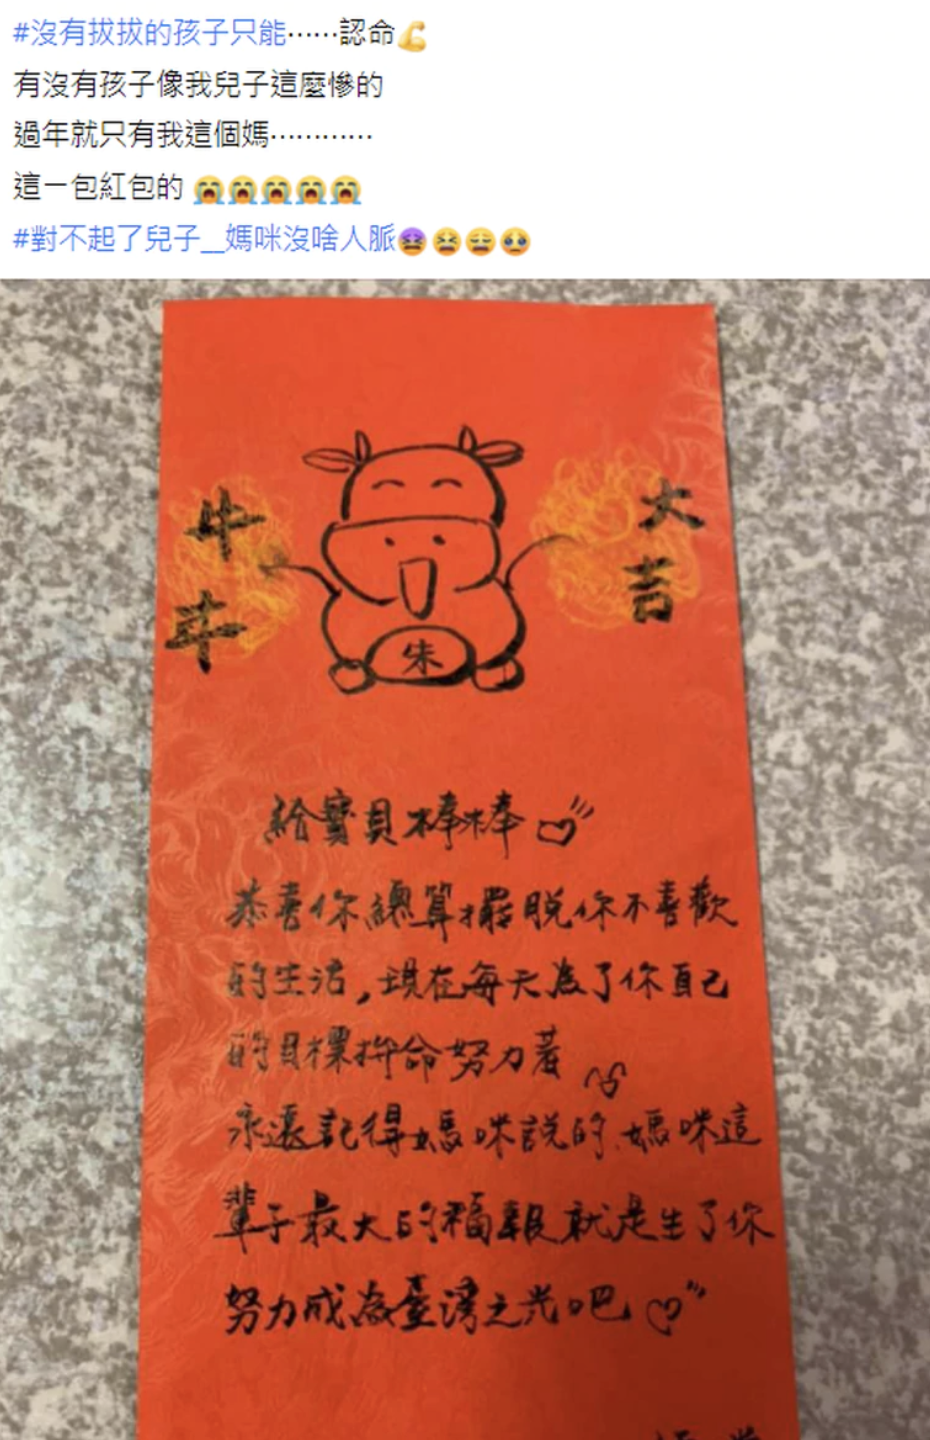 #沒有拔拔的孩子只能……認命💪
有沒有孩子像我兒子這麼慘的
過年就只有我這個媽…………
這一包紅包的 😭😭😭😭😭
#對不起了兒子__媽咪沒啥人脈😖😫😩🥺
牛牛
大吉
朱
給寶貝棒棒
恭喜你總算擺脫你不喜歡
的生活,現在每天為了你自己
的目標拚命努力著
永遠記得媽咪說的.媽咪這
輩子最大的福報就是生了你
努力成為臺灣之光吧